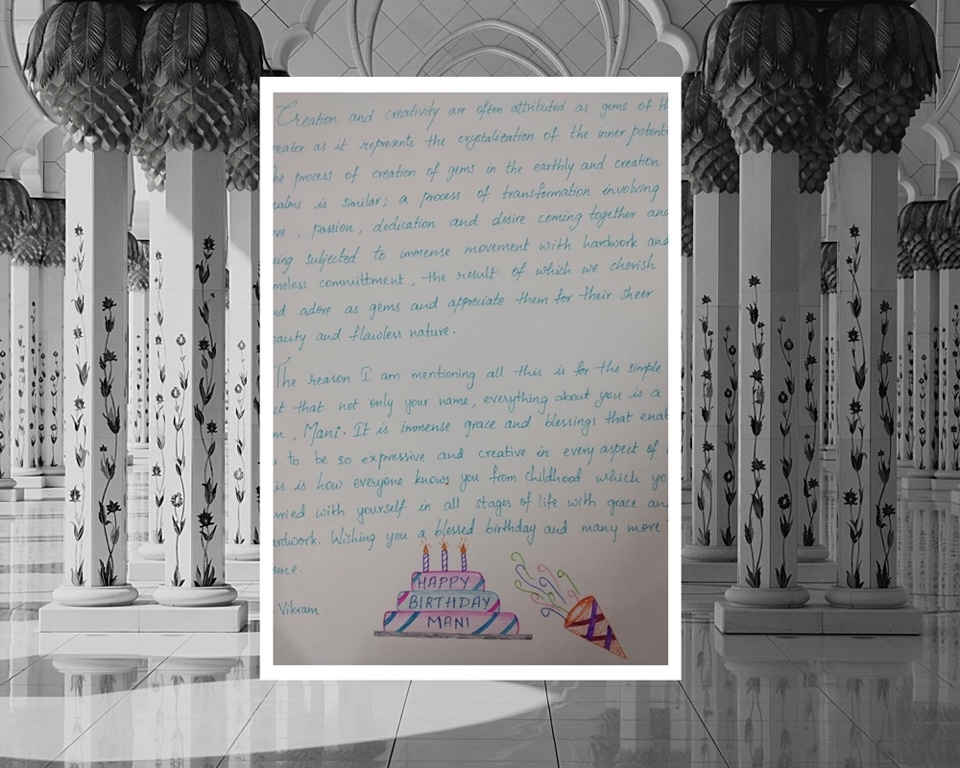 Creation and creativity are often attributed as gems of th
reator as it represents the crystalization of the inner potent
he process of creation of gems in the earthly and creation
ealms is similar; a process of transformation involving
ve, passion, dedication and desire coming together and
eing subjected to immense movement with hardwork and
meless committment, the result of which we cherish
nd adore as gems and appreciate them for their sheer
eauty and flawless nature.
The reason I am mentioning all this is for the simple
ct that not only your name, everything about you is a
m, Mani. It is immense grace and blessings that enab
u to be so expressive and creative in every aspect of
is is how everyone knows you from childhood which yo
rried with yourself in all stages of life with grace an
rdwork. Wishing you a blessed birthday and many more
ome.
Vikram
HAPPY
BIRTHDAY
MANI